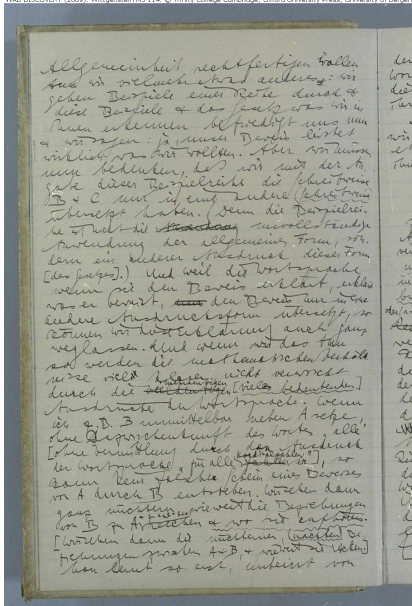 WAB DISCOVERY (2009). Wittgenstein Ms 114. © Trinity College Cambridge, Oxford University Press, University of Bergen
Allgemeinheit rechtfertigen wollen
tun wir vielmehr etwas anderes: wir
gehen Beispiele einer Reihe durch &
diese Beispiele & das Gesetz was wir in
ihnen erkennen befriedigt uns nun
& wir sagen: ja, unser Beweis leistet
wirklich was wir wollten. Aber wir müssen
nun bedenken, daß wir mit der An-
gabe dieser Beispielreihe die Schreibweise
B & C nur in eine andere Schreibweise
übersetzt haben. (Denn die Beispielrei-
be ist nicht die unvollständige
Anwendung der allgemeinen Form, son-
dern ein anderer Ausdruck dieser Form
[des Gesetzes].) Und weil die Wortsprache
wenn sie den Beweis erklärt, erklärt
was er beweist, den Beweis nur in eine
andere Ausdrucksform übersetzt, so
können wir diese Erklärung auch ganz
weglassen. Und wenn wir das tun
so werden die mathematischen Verhält-
nisse viel klarer, nicht verwischt
durch die [vieles bedeutenden]
Ausdrücke der Wortsprache. Wenn
ich z.B. B unmittelbar neben A setze,
ohne Dazwischenkunft des Wortes "alle"
[ohne Vermittlung durch den Ausdruck
der Wortsprache "für alle "], so
kann kein falscher Schein eines Beweises
von A durch B entstehen. Wir sehen dann
ganz nüchtern wie weit die Beziehungen
von B zu A reichen & wo sie aufhören.
[Wir sehen dann die nüchternen (nackten) Be-
ziehungen zwischen A & B, & wie weit sie reichen.]
Man lernt so erst, unbeirrt von